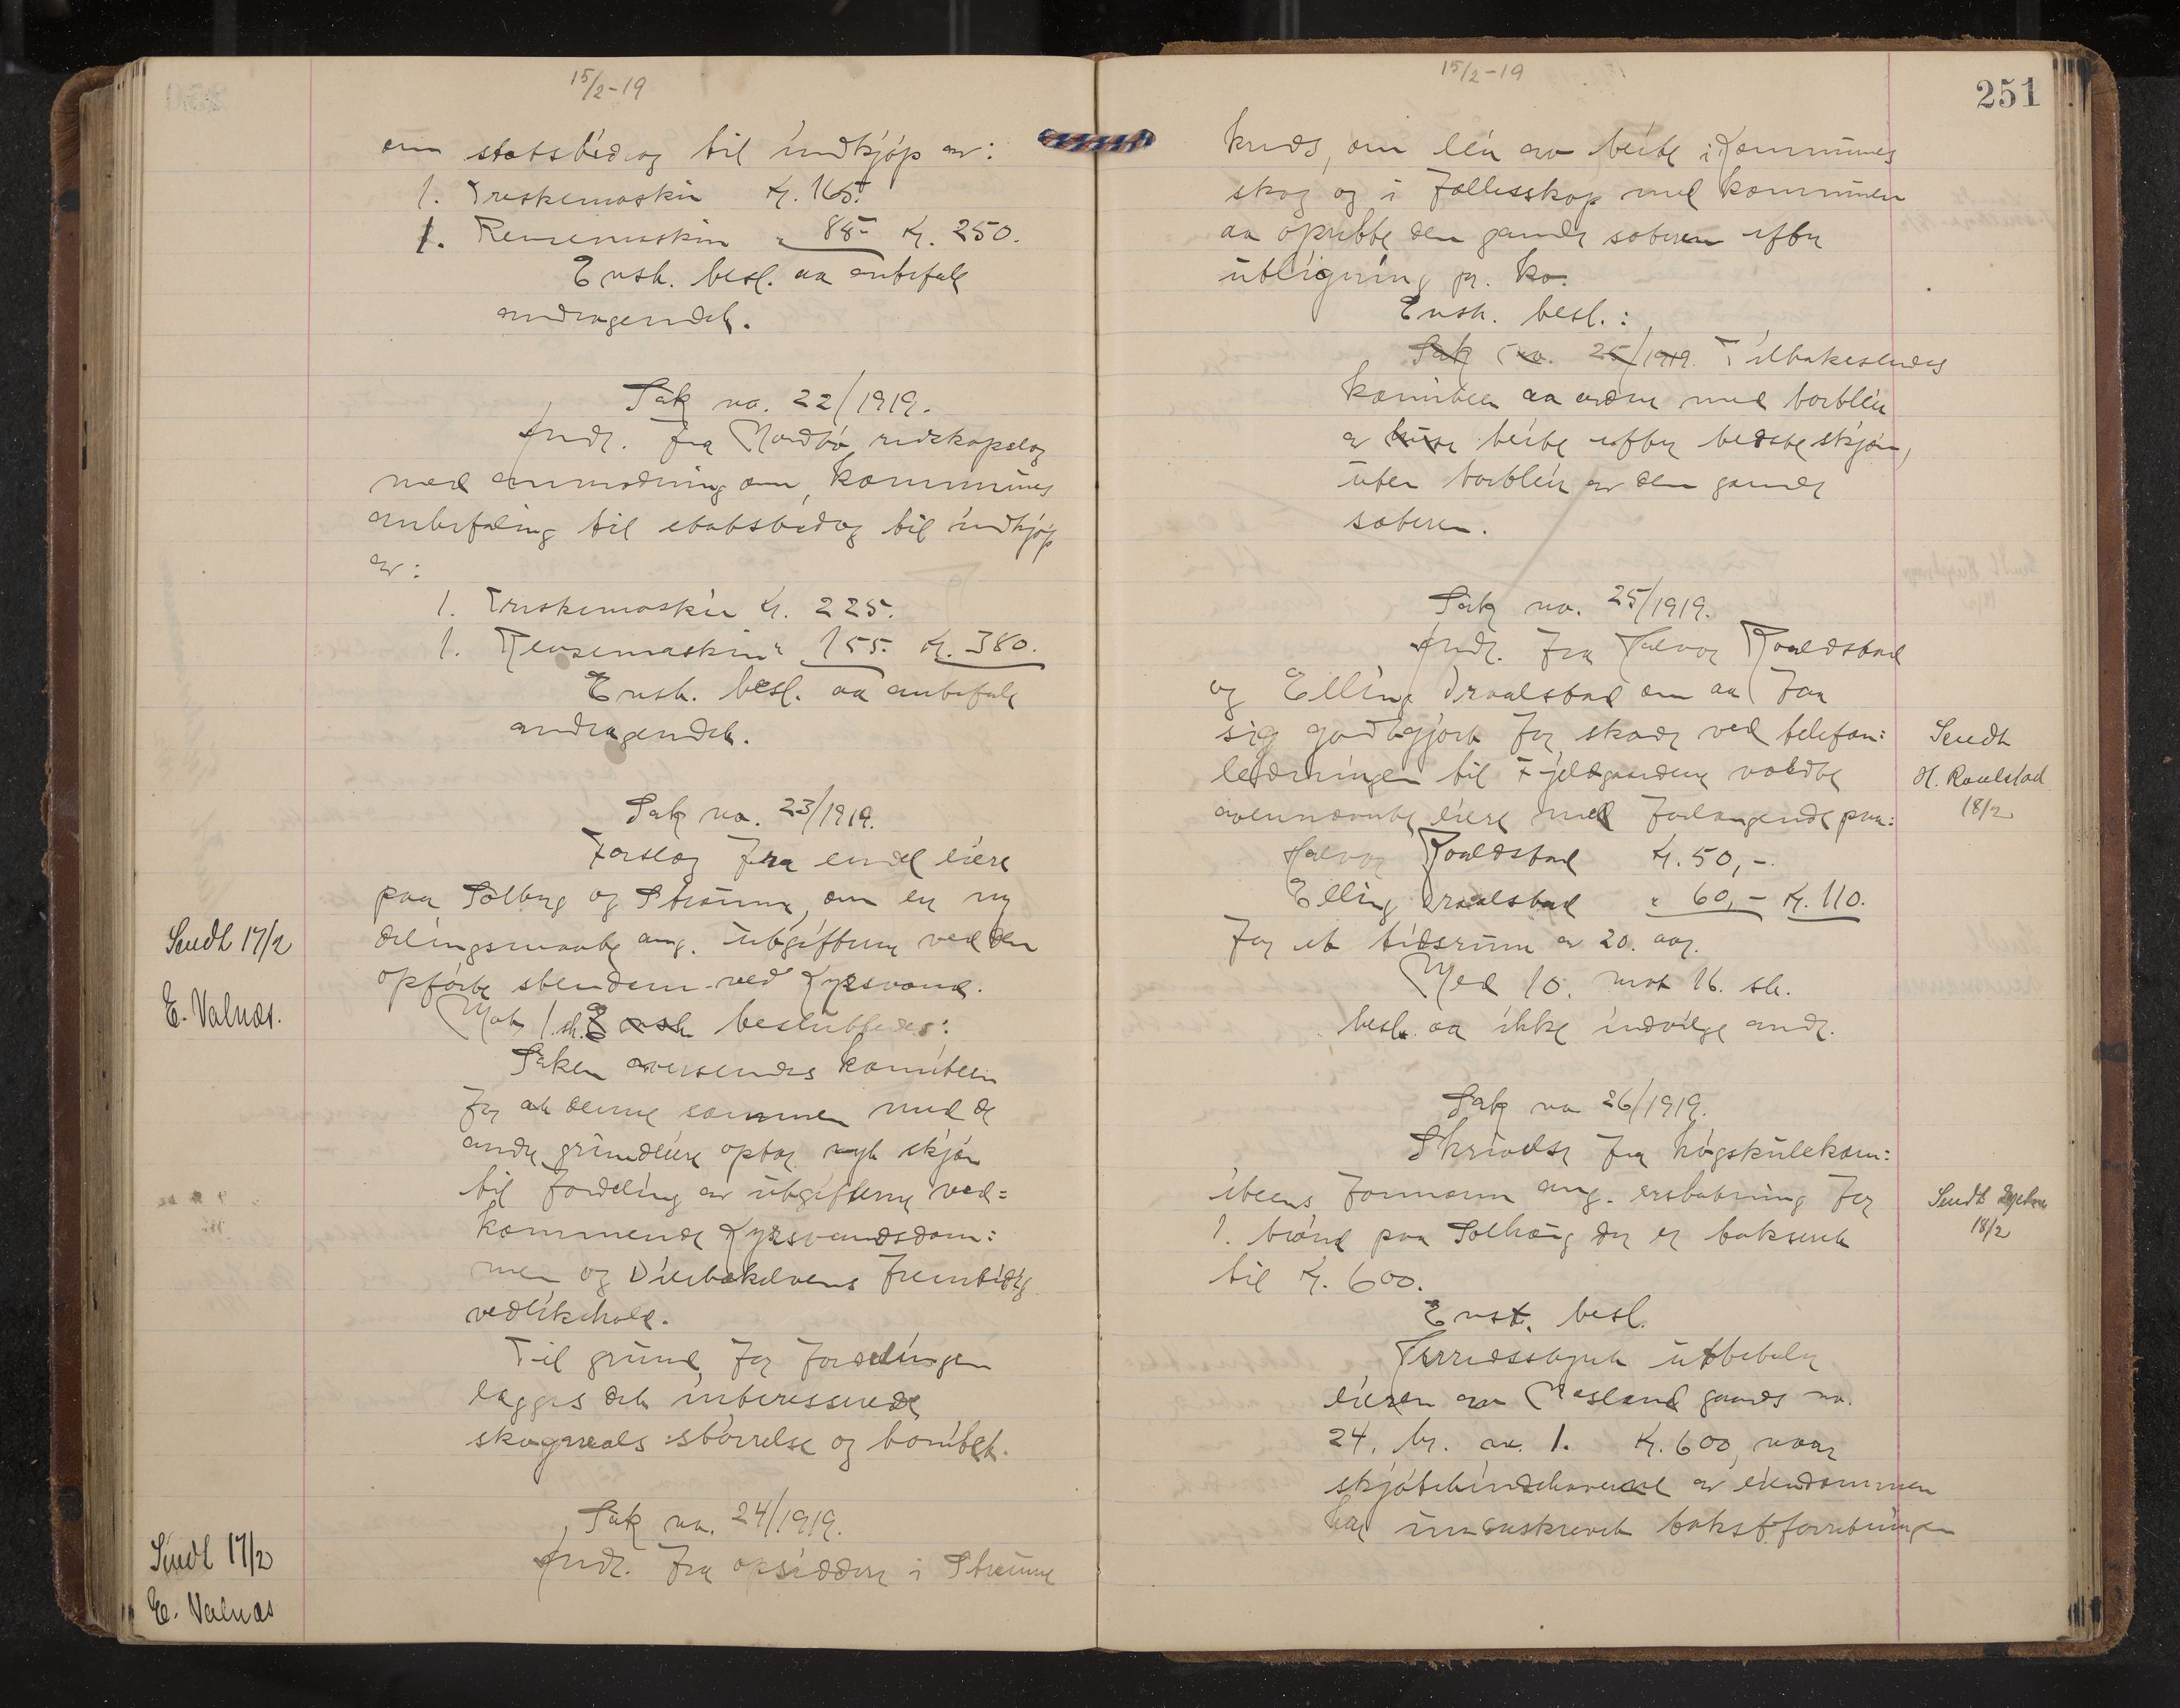 15/2-19
om statsbidrag til indkjøp av:
1. Treskemaskin Kr. 165.-
1. Rensemaskin " 85.- Kr. 250.
Enst. besl. aa anbefale
andragendet.
Sak no. 22/1919.
Andr. fra Nordbø redskapslag
med anmodning om kommunens
anbefaling til statsbidrag til indkjøp
av:
1. Treskemaskin Kr. 225.
1. Rensemaskin " 155. Kr. 380.
Enst. besl. aa anbefale
andragendet.
Sak no. 23/1919.
Forslag fra endel eiere
paa Solberg og Strømme, om en ny
delingsmaate ang. utgifterne ved den
opførte stendem ved Kyrsvand.
Mot 1 st. Enst. besluttedes:
Saken oversendes komiteen
for at denne sammen med de
andre grundeiere optar nyt skjøn
til fordeling av utgifterne ved=
kommende Kyrsvandsdam:
men og Diesbækelvens fremtidige
vedlikehold.
Til grund for fordelingen
lægges det interesserede
skogareals størrelse og bonitet.
Sak no. 24/1919.
Andr. fra opsiddere i Strømme
Sendt 17/2
E. Valnæs.
Sendt 17/2
E. Valnæs
15/2-19
251
kreds, om leie av beite i Kommunens
skog og i fællesskap med kommunen
aa oprette den gamle sæteren efter
utligning pr. ko.
Enst. besl.:
Sak no. 25/1919. Tilbakesendes
komiteen aa ordne med bortleie
av beite efter bedste skjøn,
uten bortleie av den gamle
sæteren.
Sak no. 25/1919.
Andr. fra Halvor Roaldstad
og Elling Draalstad om aa faa
sig godtgjort for skade ved telefon:
ledningen til Fjeldgaardene voldte
ovennævnte eiere med forlangende paa:
Halvor Roaldstad Kr. 50,-
Elling Draalstad " 60,- Kr. 110.
for et tidsrum av 20. aar.
Med 10. mot 16. st.
besl. aa ikke indvilge andr.
Sak no 26/1919.
Skrivelse fra høgskulekom:
iteens formann ang. erstatning for
1. brønd paa Solhaug der er taksert
til Kr. 600.
Enst. besl.
Herredsstyret utbetaler
eieren av Næsland gaards no.
24. br. no. 1. Kr. 600, naar
skjøteindehaveren av eiendommen
har underskrevet takstforretningen
Sendt
H. Roalstad
18/2
Sendt
18/2